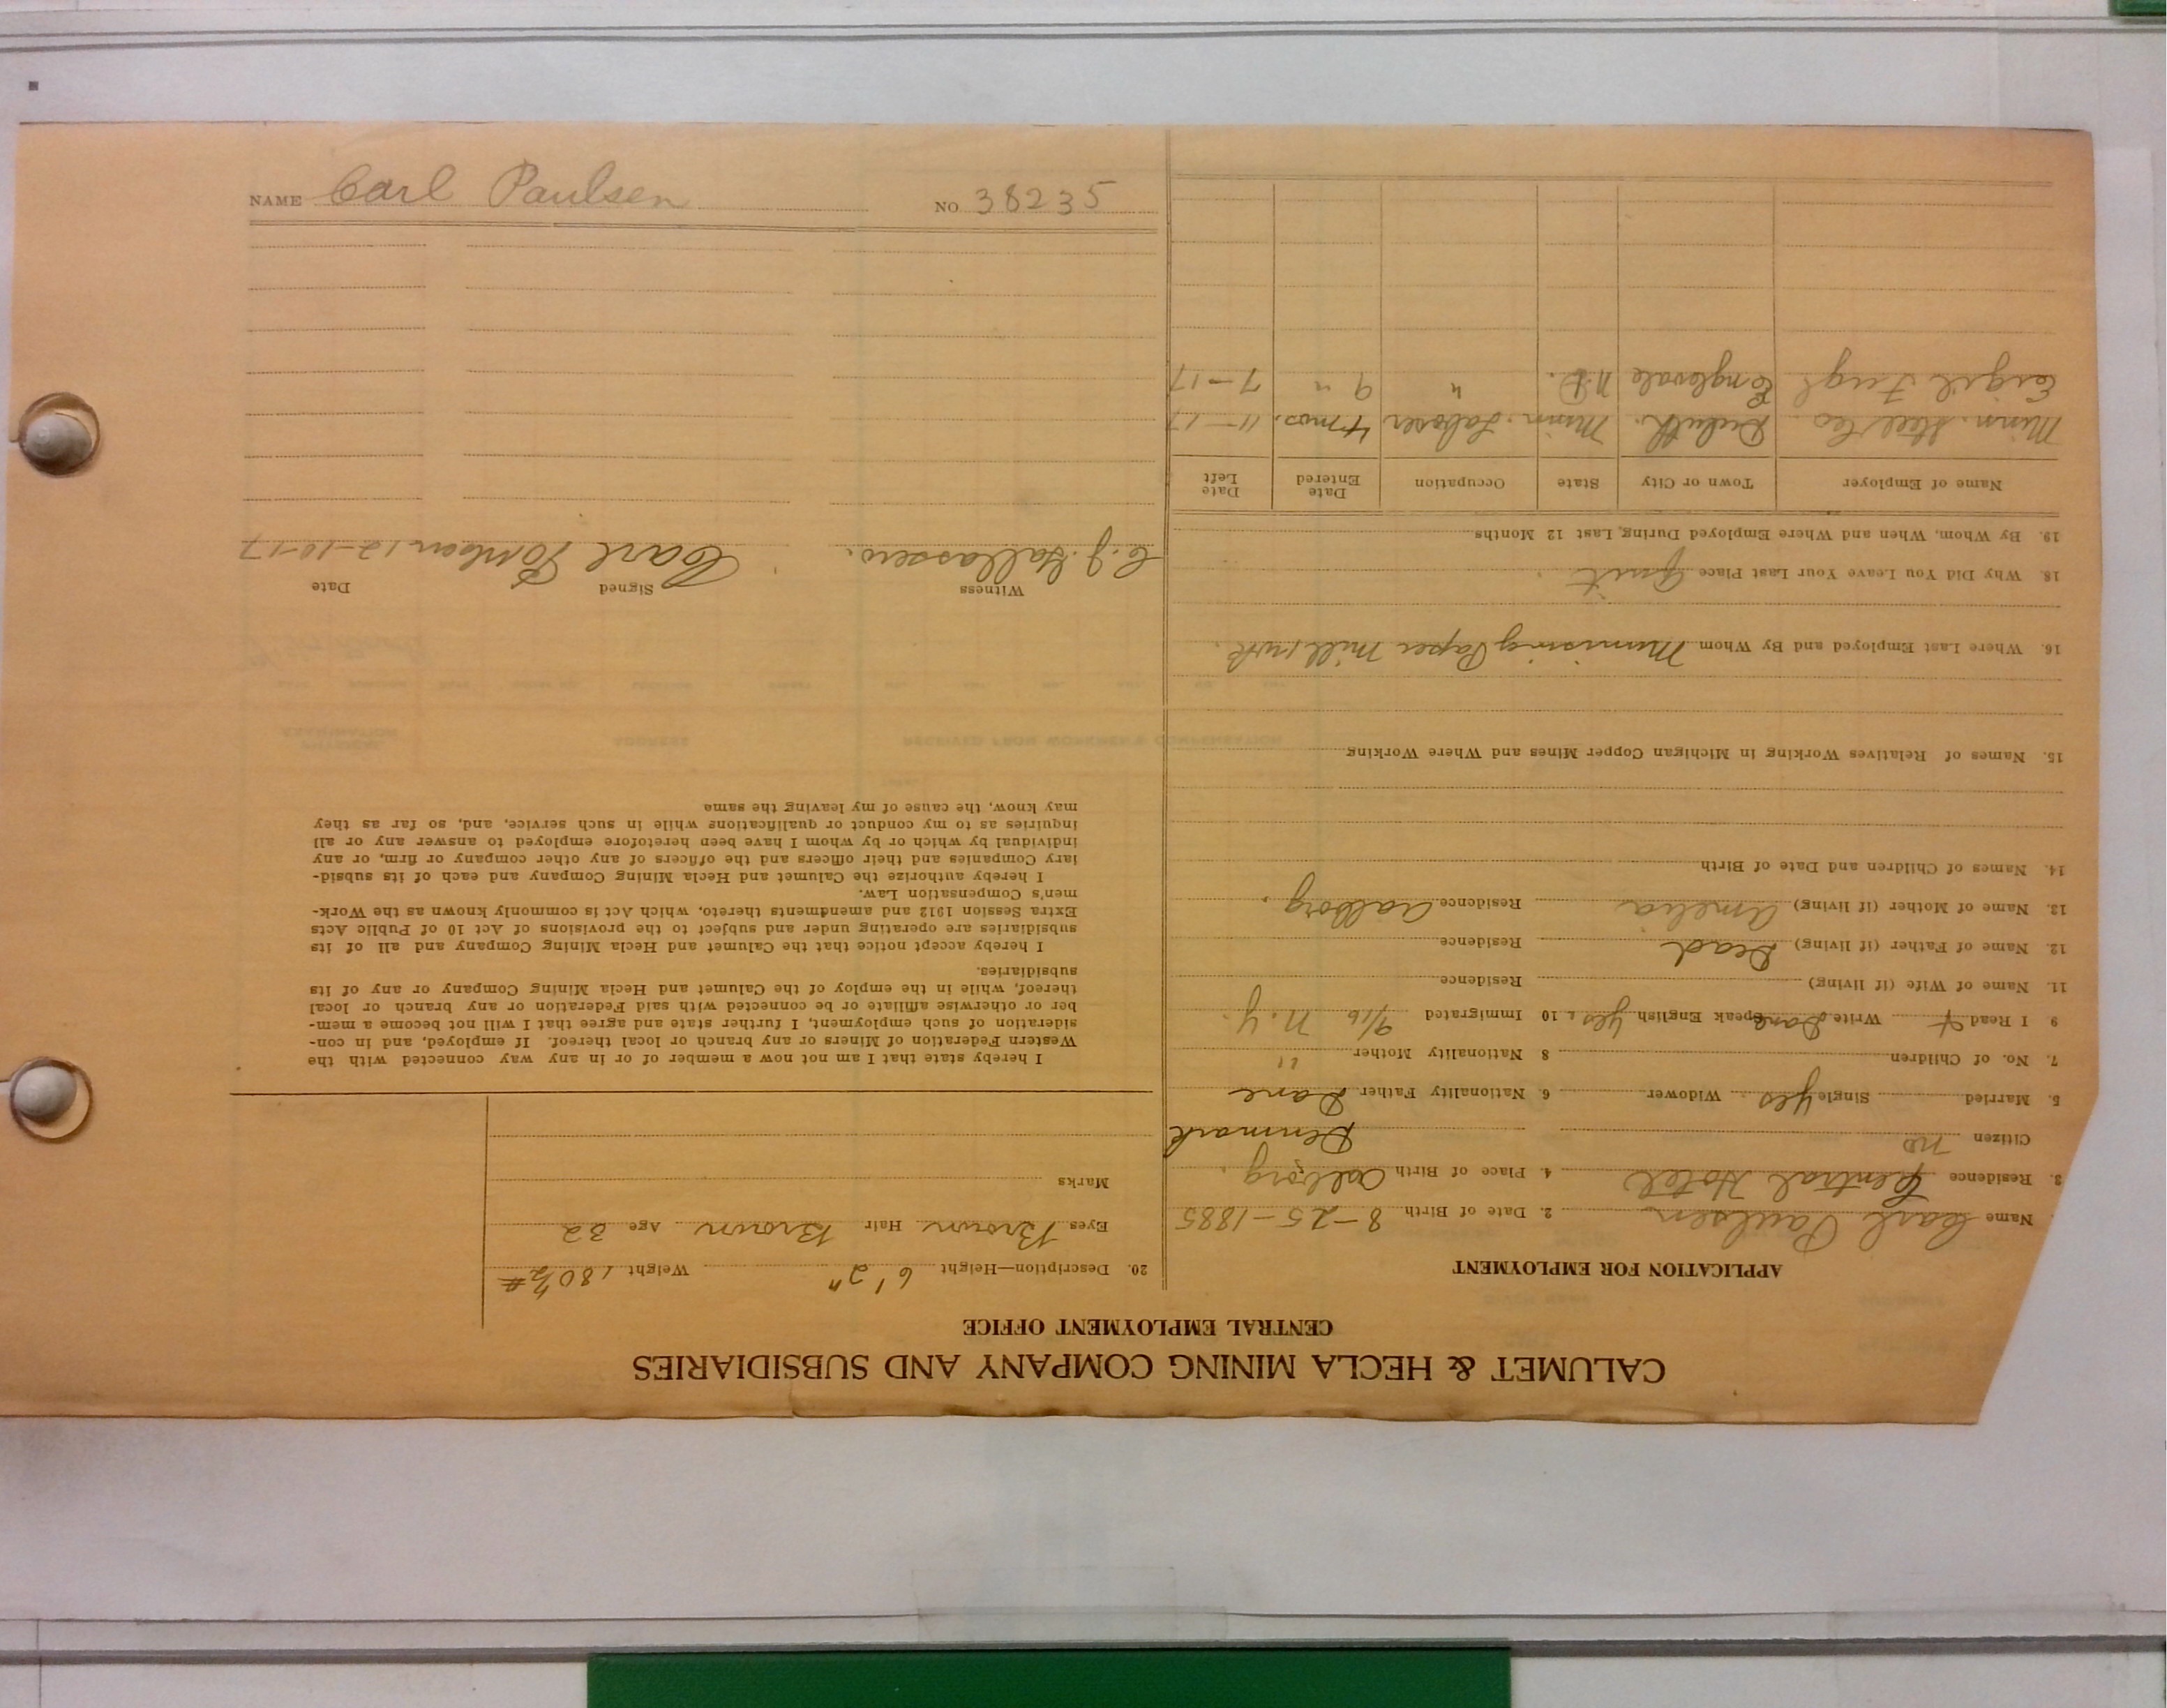 CALUMET & HECLA MINING COMPANY AND SUBSIDIARIES
CENTRAL EMPLOYMENT OFFICE
APPLICATION FOR EMPLOYMENT
Name Carl Paulsen 2. Date of Birth 8-25-1885
3. Residence Central Hotel 4. Place of Birth Aalborg,
Citizen no Denmark
5. Married Single Yes Widower 6. Nationality Father Dane
7. No. of Children 8 Nationality Mother "
9 I Read & Write Dane Speak English Yes. 10 Immigrated 9/16 N.Y.
11. Name of Wife (if living) Residence
12. Name of Father (if living) Dead Residence
13. Name of Mother (if living) Amelia Residence Aalborg.
14. Names of Children and Date of Birth
15. Names of Relatives Working in Michigan Copper Mines and Where Working
16. Where Last Employed and By Whom Munising Paper Mill 1 wk.
18. Why Did You Leave Your Last Place Quit.
19. By Whom, When and Where Employed During Last 12 Months
Name of Employer Town or City State Occupation Date Entered Date Left
Minn. Steel Co Duluth. Minn. Laborer 4 mos. 11-17
Englevale N.D. " 9 " 7-17
20. Description—Height 6' 2" Weight 180 1/2 #
Eyes Brown Hair Brown Age 32
Marks
I hereby state that I am not now a member of or in any way connected with the
Western Federation of Miners or any branch or local thereof. If employed, and in con-
sideration of such employment, I further state and agree that I will not become a mem-
ber or otherwise affiliate or be connected with said Federation or any branch or local
thereof, while in the employ of the Calumet and Hecla Mining Company or any of its
subsidiaries.
I hereby accept notice that the Calumet and Hecla Mining Company and all of its
subsidiaries are operating under and subject to the provisions of Act 10 of Public Acts
Extra Session 1912 and amendments thereto, which Act is commonly known as the Work-
men's Compensation Law.
I hereby authorize the Calumet and Hecla Mining Company and each of its subsid-
iary Companies and their officers and the officers of any other company or firm, or any
individual by which or by whom I have been heretofore employed to answer any or all
inquiries as to my conduct or qualifications while in such service, and, so far as they
may know, the cause of my leaving the same
Witness Signed Date
C. J. Carl 12-10-17
NAME Carl Paulsen NO 38235